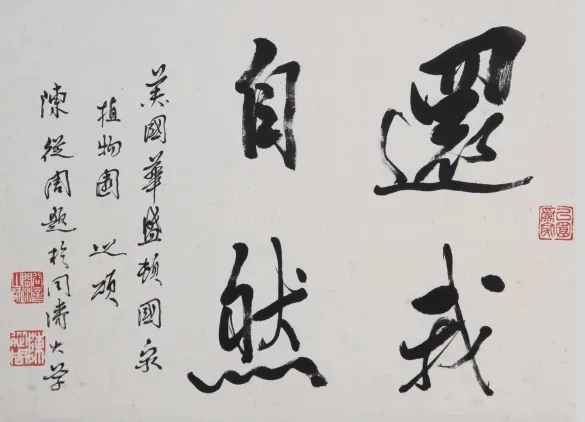 還我
自然
美國華盛頓國家
植物園之頌
陳從周題於同濟大学